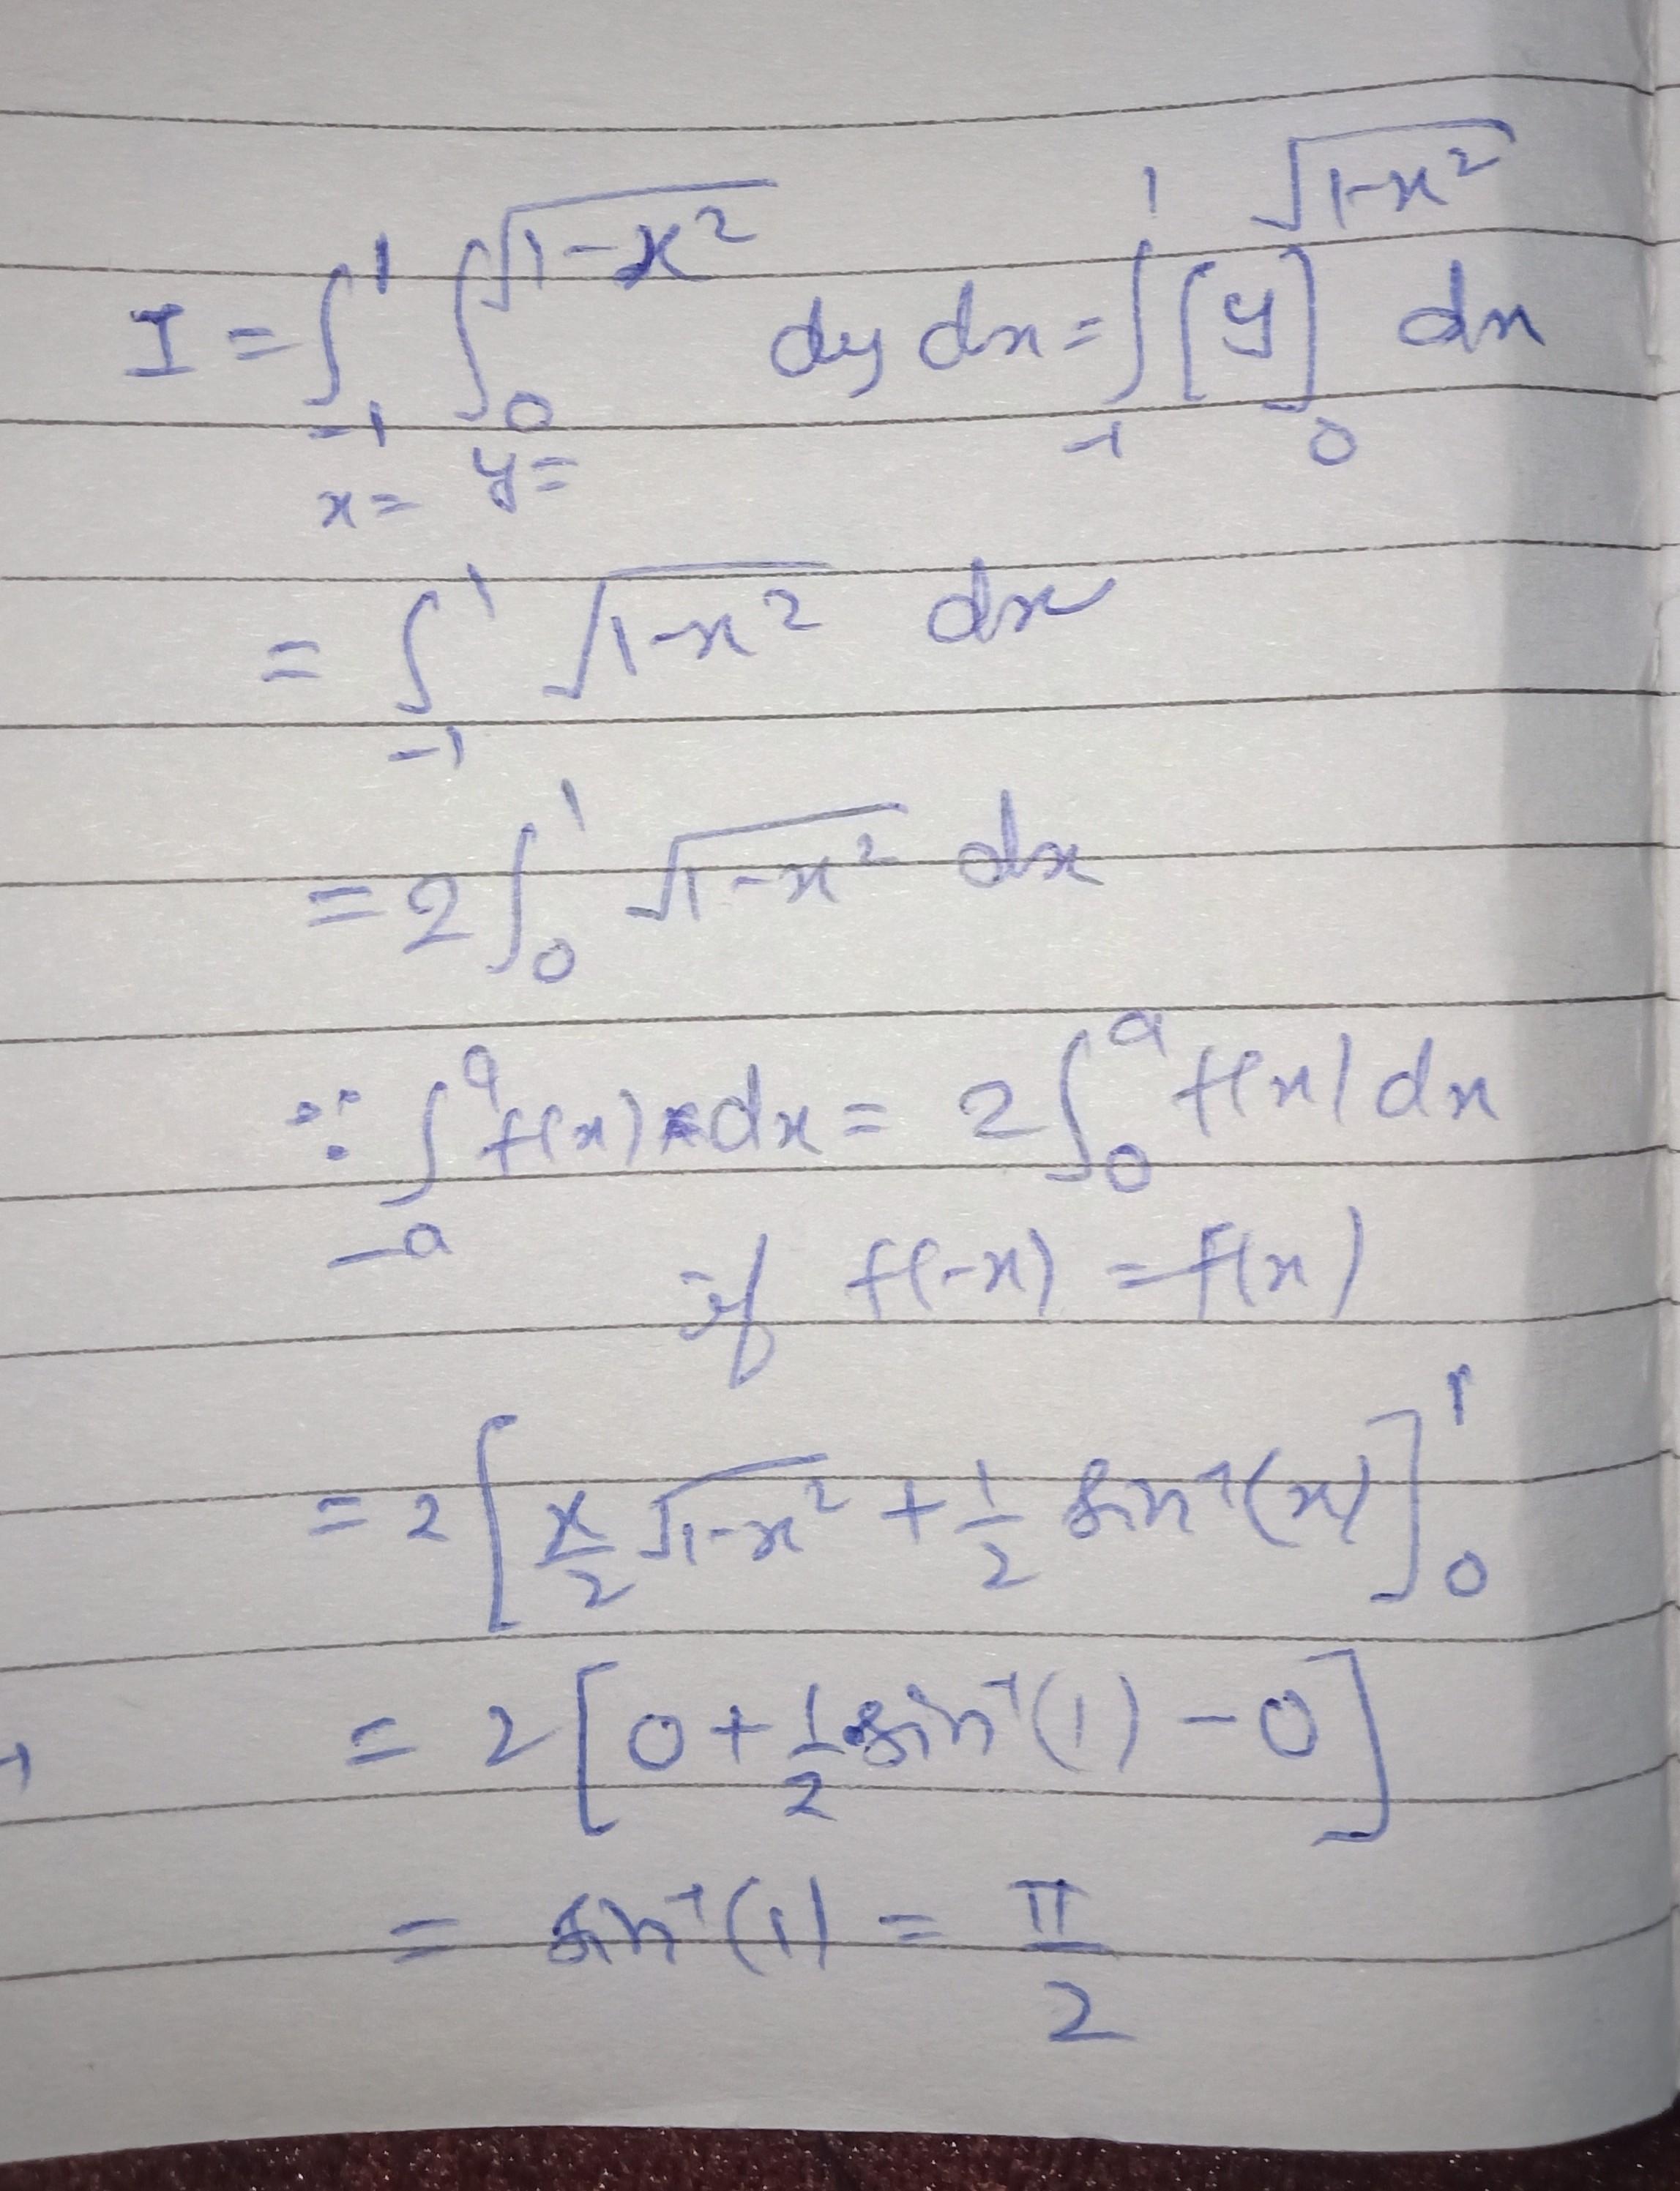 I = ∫_{-1}^{1} ∫_{0}^{√(1-x²)} dy dx = ∫_{-1}^{1} [y]_{0}^{√(1-x²)} dx
x= y=
= ∫_{-1}^{1} √(1-x²) dx
= 2 ∫_{0}^{1} √(1-x²) dx
∵ ∫_{-a}^{a} f(x) dx = 2 ∫_{0}^{a} f(x) dx
if f(-x) = f(x)
= 2 [x/2 √(1-x²) + 1/2 sin⁻¹(x)]_{0}^{1}
= 2 [0 + 1/2 sin⁻¹(1) - 0]
= sin⁻¹(1) = π/2